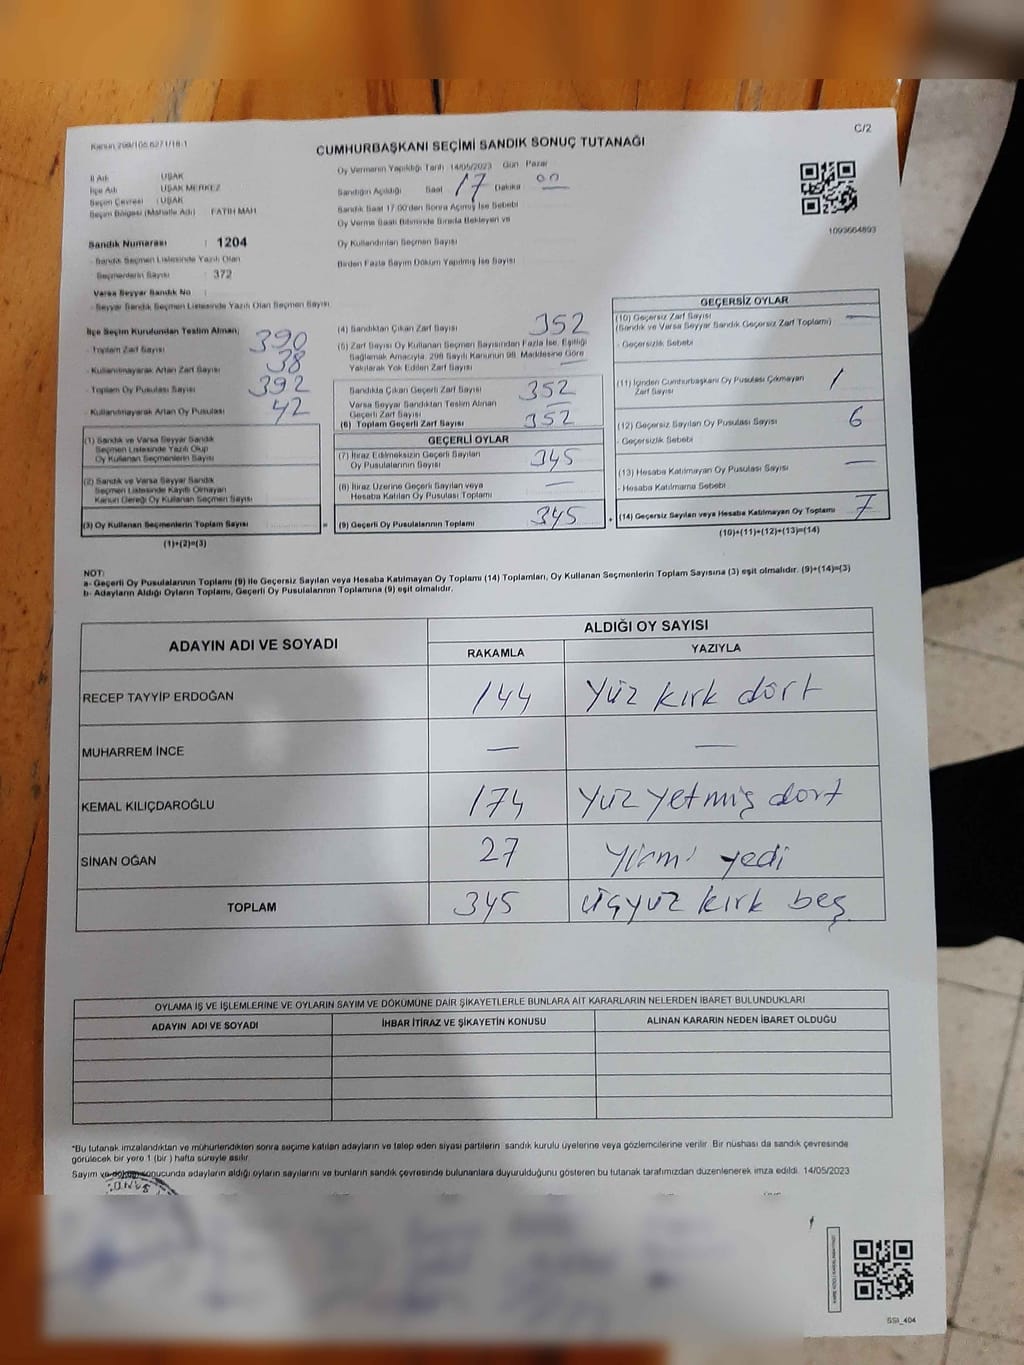 Kanun 298/105,6271/18-1
C/2
CUMHURBAŞKANI SEÇİMİ SANDIK SONUÇ TUTANAĞI
İl Adı : UŞAK
İlçe Adı : UŞAK MERKEZ
Seçim Çevresi : UŞAK
Seçim Bölgesi (Mahalle Adı) FATİH MAH
Sandık Numarası : 1204
- Sandık Seçmen Listesinde Yazılı Olan
Seçmenlerin Sayısı : 372
Varsa Seyyar Sandık No
- Seyyar Sandık Seçmen Listesinde Yazılı Olan Seçmen Sayısı
Oy Vermenin Yapıldığı Tarih :14/05/2023 Gün Pazar
Sandığın Açıldığı Saat 17 Dakika 00
Sandık Saat 17.00'den Sonra Açılmış İse Sebebi
Oy Verme Saati Bitiminde Sırada Bekleyen ve
Oy Kullandırılan Seçmen Sayısı
Birden Fazla Sayım Döküm Yapılmış İse Sayısı
1093664893
İlçe Seçim Kurulundan Teslim Alınan;
- Toplam Zarf Sayısı 390
- Kullanılmayarak Artan Zarf Sayısı 38
- Toplam Oy Pusulası Sayısı 392
- Kullanılmayarak Artan Oy Pusulası 42
(1) Sandık ve Varsa Seyyar Sandık
Seçmen Listesinde Yazılı Olup
Oy Kullanan Seçmenlerin Sayısı
(2) Sandık ve Varsa Seyyar Sandık
Seçmen Listesinde Kayıtlı Olmayan
Kanun Gereği Oy Kullanan Seçmen Sayısı
(3) Oy Kullanan Seçmenlerin Toplam Sayısı =
(1)+(2)=(3)
(4) Sandıktan Çıkan Zarf Sayısı 352
(5) Zarf Sayısı Oy Kullanan Seçmen Sayısından Fazla İse, Eşitliği
Sağlamak Amacıyla, 298 Sayılı Kanunun 98. Maddesine Göre
Yakılarak Yok Edilen Zarf Sayısı —
Sandıkta Çıkan Geçerli Zarf Sayısı 352
Varsa Seyyar Sandıktan Teslim Alınan
Geçerli Zarf Sayısı —
(6) Toplam Geçerli Zarf Sayısı 352
GEÇERLİ OYLAR
(7) İtiraz Edilmeksizin Geçerli Sayılan
Oy Pusulalarının Sayısı 345
(8) İtiraz Üzerine Geçerli Sayılan veya
Hesaba Katılan Oy Pusulası Toplamı —
(9) Geçerli Oy Pusulalarının Toplamı 345 +
GEÇERSİZ OYLAR
(10) Geçersiz Zarf Sayısı —
(Sandık ve Varsa Seyyar Sandık Geçersiz Zarf Toplamı)
- Geçersizlik Sebebi
(11) İçinden Cumhurbaşkanı Oy Pusulası Çıkmayan
Zarf Sayısı 1
(12) Geçersiz Sayılan Oy Pusulası Sayısı 6
- Geçersizlik Sebebi
(13) Hesaba Katılmayan Oy Pusulası Sayısı —
- Hesaba Katılmama Sebebi
(14) Geçersiz Sayılan veya Hesaba Katılmayan Oy Toplamı 7
(10)+(11)+(12)+(13)=(14)
NOT:
a- Geçerli Oy Pusulalarının Toplamı (9) ile Geçersiz Sayılan veya Hesaba Katılmayan Oy Toplamı (14) Toplamları, Oy Kullanan Seçmenlerin Toplam Sayısına (3) eşit olmalıdır. (9)+(14)=(3)
b- Adayların Aldığı Oyların Toplamı, Geçerli Oy Pusulalarının Toplamına (9) eşit olmalıdır.
ADAYIN ADI VE SOYADI ALDIĞI OY SAYISI
RAKAMLA YAZIYLA
RECEP TAYYİP ERDOĞAN 144 Yüz kırk dört
MUHARREM İNCE — —
KEMAL KILIÇDAROĞLU 174 Yüz yetmiş dört
SİNAN OĞAN 27 Yirmi yedi
TOPLAM 345 üçyüz kırk beş
OYLAMA İŞ VE İŞLEMLERİNE VE OYLARIN SAYIM VE DÖKÜMÜNE DAİR ŞİKAYETLERLE BUNLARA AİT KARARLARIN NELERDEN İBARET BULUNDUKLARI
ADAYIN ADI VE SOYADI İHBAR İTİRAZ VE ŞİKAYETİN KONUSU ALINAN KARARIN NEDEN İBARET OLDUĞU
*Bu tutanak imzalandıktan ve mühürlendikten sonra seçime katılan adayların ve talep eden siyasi partilerin sandık kurulu üyelerine veya gözlemcilerine verilir. Bir nüshası da sandık çevresinde
görülecek bir yere 1 (bir ) hafta süreyle asılır.
Sayım ve döküm sonucunda adayların aldığı oyların sayılarını ve bunların sandık çevresinde bulunanlara duyurulduğunu gösteren bu tutanak tarafımızdan düzenlenerek imza edildi. 14/05/2023
SSI_404